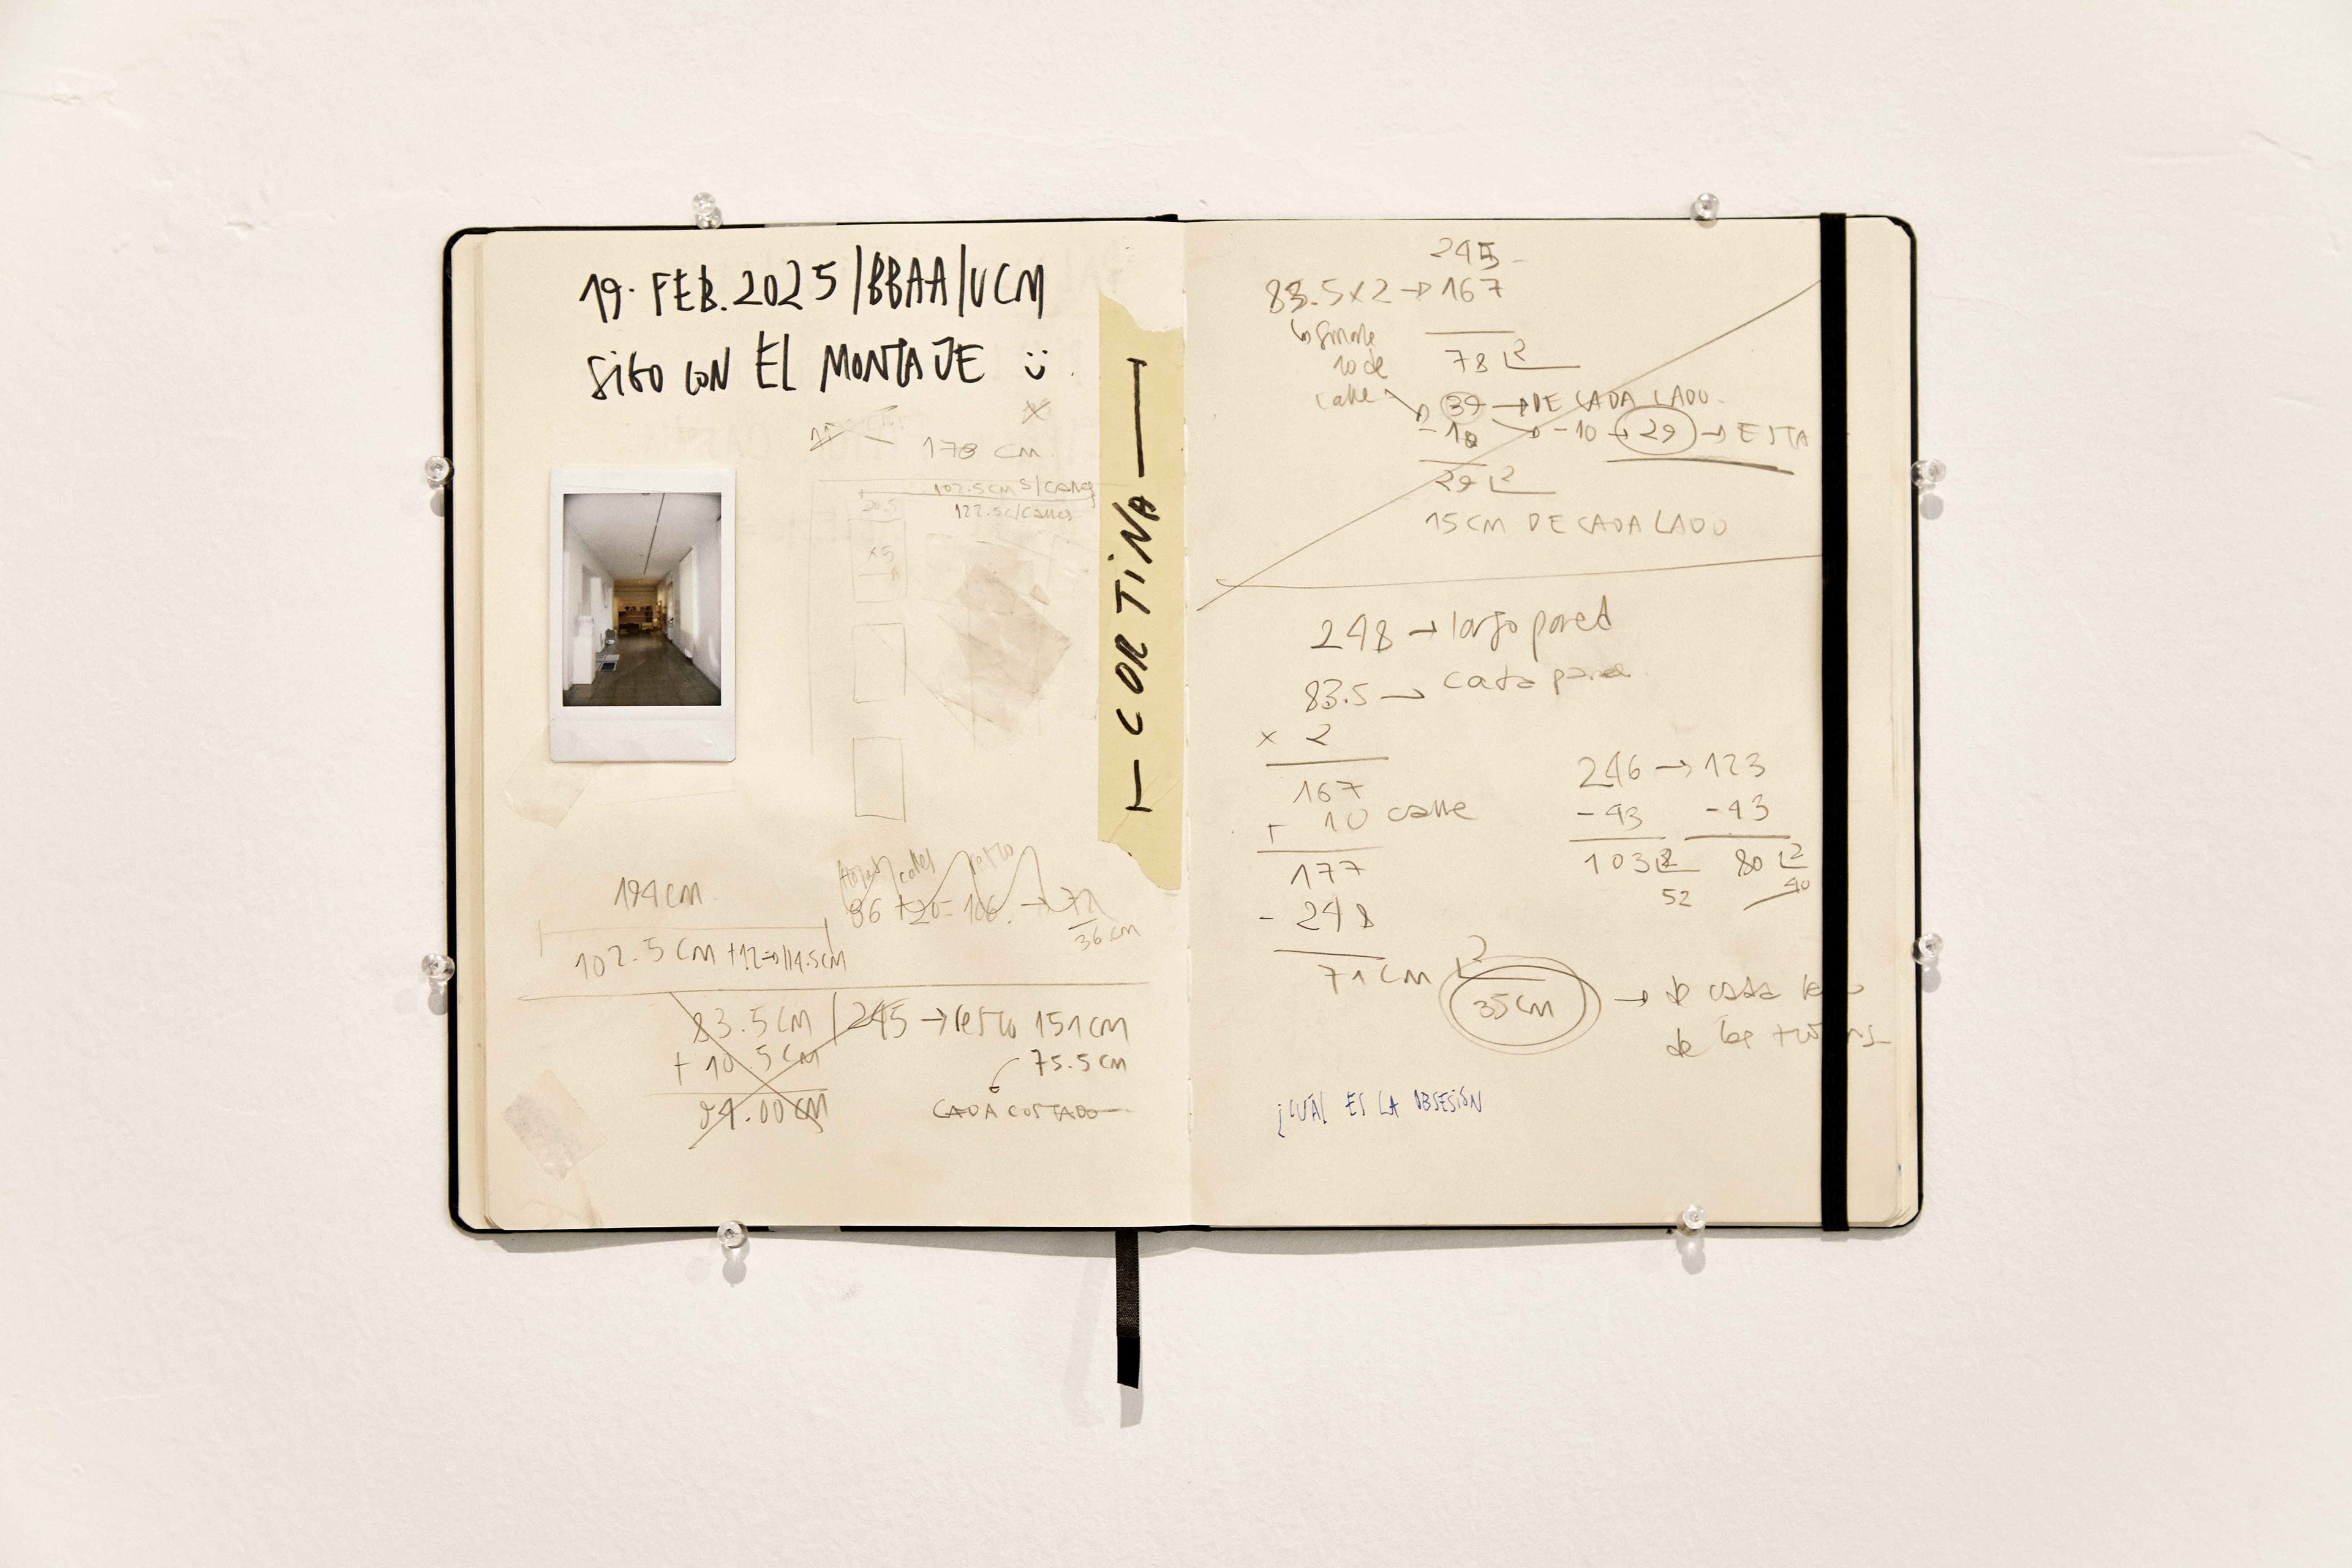 19. FEB. 2025/BBAA/UCM
SIGO CON EL MONTAJE
178 CM
102.5 CM S/CALLES
20.5
122.5 C/CALLES
x5
CORTINA
194 CM
102.5 CM +12=114.5CM
calles
86 +20= 106. → 72
36 cm
83.5 CM / 245 → resto 151 CM
+ 10.5 CM
75.5 CM
94.00 CM
CADA COSTADO
245
83.5x2 → 167
10 de
calle
78 2
39 → DE CADA LADO.
-10 → -10 → 29 → ESTA
29 2
15 CM DE CADA LADO
248 → largo pared
83.5 → cada
x 2
167
+ 10 calle
177
- 248
71 CM 2
35 CM → de cada
de las
246 → 123
- 43 - 43
103 2 80 2
52 40
¿CUÁL ES LA OBSESIÓN